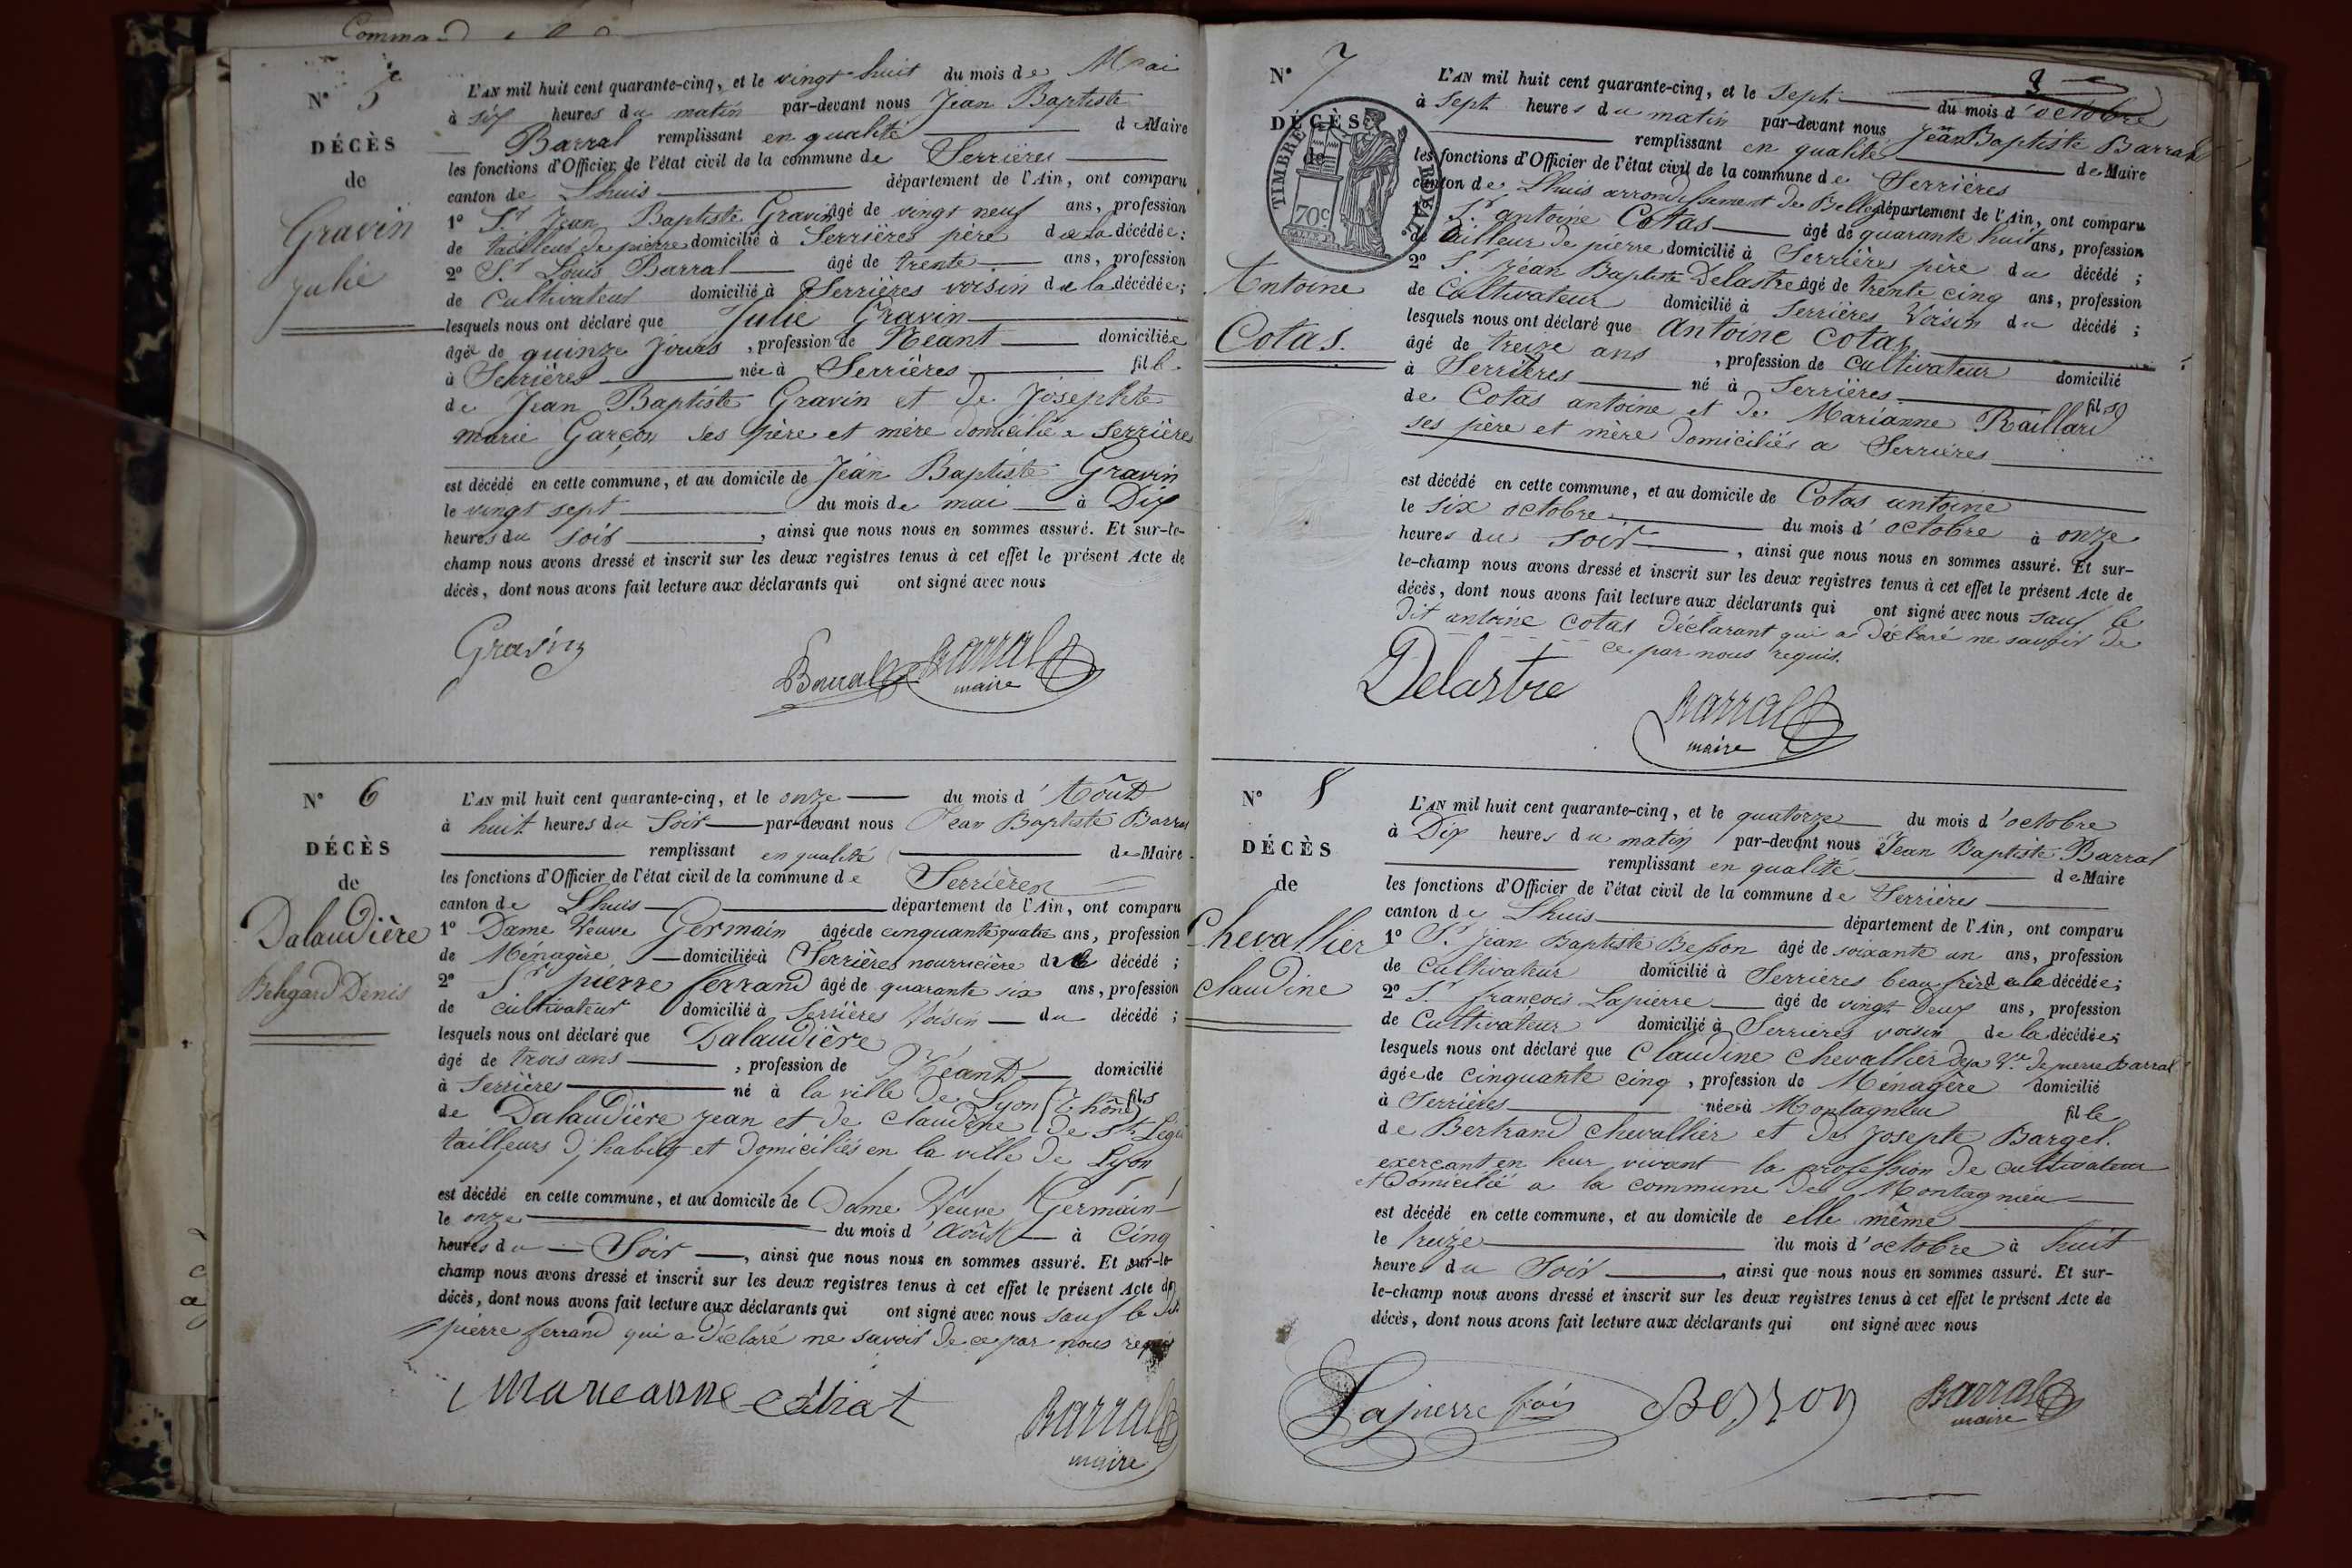 N° 5
DÉCÈS
de
Gravin
Julie
L'AN mil huit cent quarante-cinq, et le vingt huit du mois de Mai
à six heures du matin par-devant nous Jean Baptiste
Barral remplissant en qualité de Maire
les fonctions d'Officier de l'état civil de la commune de Serrières
canton de Lhuis département de l'Ain, ont comparu
1° Sr Jean Baptiste Gravin âgé de vingt neuf ans, profession
de tailleur de pierre domicilié à Serrières père de la décédée;
2° Sr Louis Barral âgé de trente ans, profession
de cultivateur domicilié à Serrières voisin de la décédée;
lesquels nous ont déclaré que Julie Gravin
âgée de quinze jours, profession de Néant domiciliée
à Serrières née à Serrières fille
de Jean Baptiste Gravin et de Josephte
marie Garçon ses père et mère domicilié a Serrières
est décédé en cette commune, et au domicile de Jean Baptiste Gravin
le vingt sept du mois de mai à Dix
heures du soir, ainsi que nous nous en sommes assuré. Et sur-le-
champ nous avons dressé et inscrit sur les deux registres tenus à cet effet le présent Acte de
décès, dont nous avons fait lecture aux déclarants qui ont signé avec nous
Gravin
Barral Barral
maire
N° 6
DÉCÈS
de
Dalaudière
Denis
L'AN mil huit cent quarante-cinq, et le onze du mois d'Août
à huit heures du Soir par-devant nous Jean Baptiste Barral
remplissant en qualité de Maire
les fonctions d'Officier de l'état civil de la commune de Serrières
canton de Lhuis département de l'Ain, ont comparu
1° Dame Veuve Germain âgée de cinquante quatre ans, profession
de Ménagère domiciliée à Serrières nourricière du décédé;
2° Sr pierre ferrand âgé de quarante six ans, profession
de cultivateur domicilié à Serrières Voisin du décédé;
lesquels nous ont déclaré que Dalaudière
âgé de trois ans, profession de Néant domicilié
à Serrières né à la ville de Lyon (Rhône) fils
de Dalaudière jean et de claudine de St.
tailleurs d'habits et domiciliés en la ville de Lyon
est décédé en cette commune, et au domicile de Dame Veuve Germain
le onze du mois d'Août à Cinq
heures du Soir, ainsi que nous nous en sommes assuré. Et sur-le-
champ nous avons dressé et inscrit sur les deux registres tenus à cet effet le présent Acte de
décès, dont nous avons fait lecture aux déclarants qui ont signé avec nous sauf le dit
pierre ferrand qui a déclaré ne savoir de ce par nous requis
marieanne
Barral
maire
8
N° 7
DÉCÈS
de
TIMBRE ROYAL
70c
Antoine
Cotas.
L'AN mil huit cent quarante-cinq, et le Sept du mois d'octobre
à sept heures du matin par-devant nous Jean Baptiste Barral
remplissant en qualité de Maire
les fonctions d'Officier de l'état civil de la commune de Serrières
canton de Lhuis arrondissement de Belley département de l'Ain, ont comparu
1° Sr antoine Cotas âgé de quarante huit ans, profession
de tailleur de pierre domicilié à Serrières père du décédé;
2° Sr jean Baptiste Delastre âgé de trente cinq ans, profession
de Cultivateur domicilié à Serrières Voisin du décédé;
lesquels nous ont déclaré que antoine cotas
âgé de treize ans, profession de cultivateur domicilié
à Serrières né à Serrières fils
de Cotas antoine et de Marianne Raillard
ses père et mère Domiciliés a Serrières
est décédé en cette commune, et au domicile de Cotas antoine
le six octobre du mois d'octobre à onze
heures du soir, ainsi que nous nous en sommes assuré. Et sur-
le-champ nous avons dressé et inscrit sur les deux registres tenus à cet effet le présent Acte de
décès, dont nous avons fait lecture aux déclarants qui ont signé avec nous sauf le
dit antoine cotas déclarant qui a déclaré ne savoir de
ce par nous requis.
Delastre
Barral
maire
N° 8
DÉCÈS
de
Chevallier
claudine
L'AN mil huit cent quarante-cinq, et le quatorze du mois d'octobre
à Dix heures du matin par-devant nous Jean Baptiste Barral
remplissant en qualité de Maire
les fonctions d'Officier de l'état civil de la commune de Serrières
canton de Lhuis département de l'Ain, ont comparu
1° Sr jean Baptiste Besson âgé de soixante un ans, profession
de cultivateur domicilié à Serrières beau frère de la décédée;
2° Sr françois Lapierre âgé de vingt Deux ans, profession
de Cultivateur domicilié à Serrières voisin de la décédée;
lesquels nous ont déclaré que Claudine chevallier Ve de pierre Barral
âgée de cinquante cinq, profession de Ménagère domicilié
à Serrières née à Montagnieu fille
de Bertrand chevallier et de Josepte Barget.
exerçant en leur vivant la profession de cultivateur
et Domicilié a la commune de Montagnieu
est décédé en cette commune, et au domicile de elle même
le treize du mois d'octobre à huit
heures du Soir, ainsi que nous nous en sommes assuré. Et sur-
le-champ nous avons dressé et inscrit sur les deux registres tenus à cet effet le présent Acte de
décès, dont nous avons fait lecture aux déclarants qui ont signé avec nous
Lapierre fois Besson Barral
maire